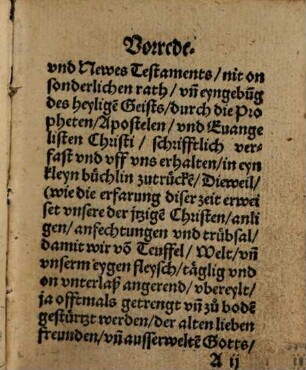 Vorrede.
vnd Newes Testaments / nit on
sonderlichen rath / vñ eyngebũg
des heyligẽ Geists / durch die Pro
pheten / Apostelen / vnd Euange
listen Christi / schrifftlich ver-
fast vnd vff vns erhalten / in eyn
kleyn büchlin zutrückẽ / Dieweil /
(wie die erfarung diser zeit erwei
set vnsere der jtzigẽ Christen / anli
gen / anfechtungen vnd trübsal /
damit wir võ Teuffel / Welt / vñ
vnserm eygen fleysch / täglig vnd
on vnterlaß angerend / vbereylt /
ja offtmals getrengt vñ zů bodẽ
gestürtzt werden / der alten lieben
freunden / vñ ausserweltẽ Gotts /
A ij